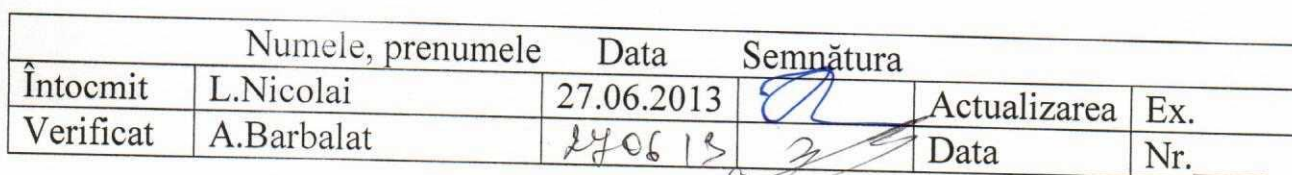 Numele, prenumele Data Semnătura
Întocmit L.Nicolai 27.06.2013 Actualizarea Ex.
Verificat A.Barbalat 270613 Data Nr.